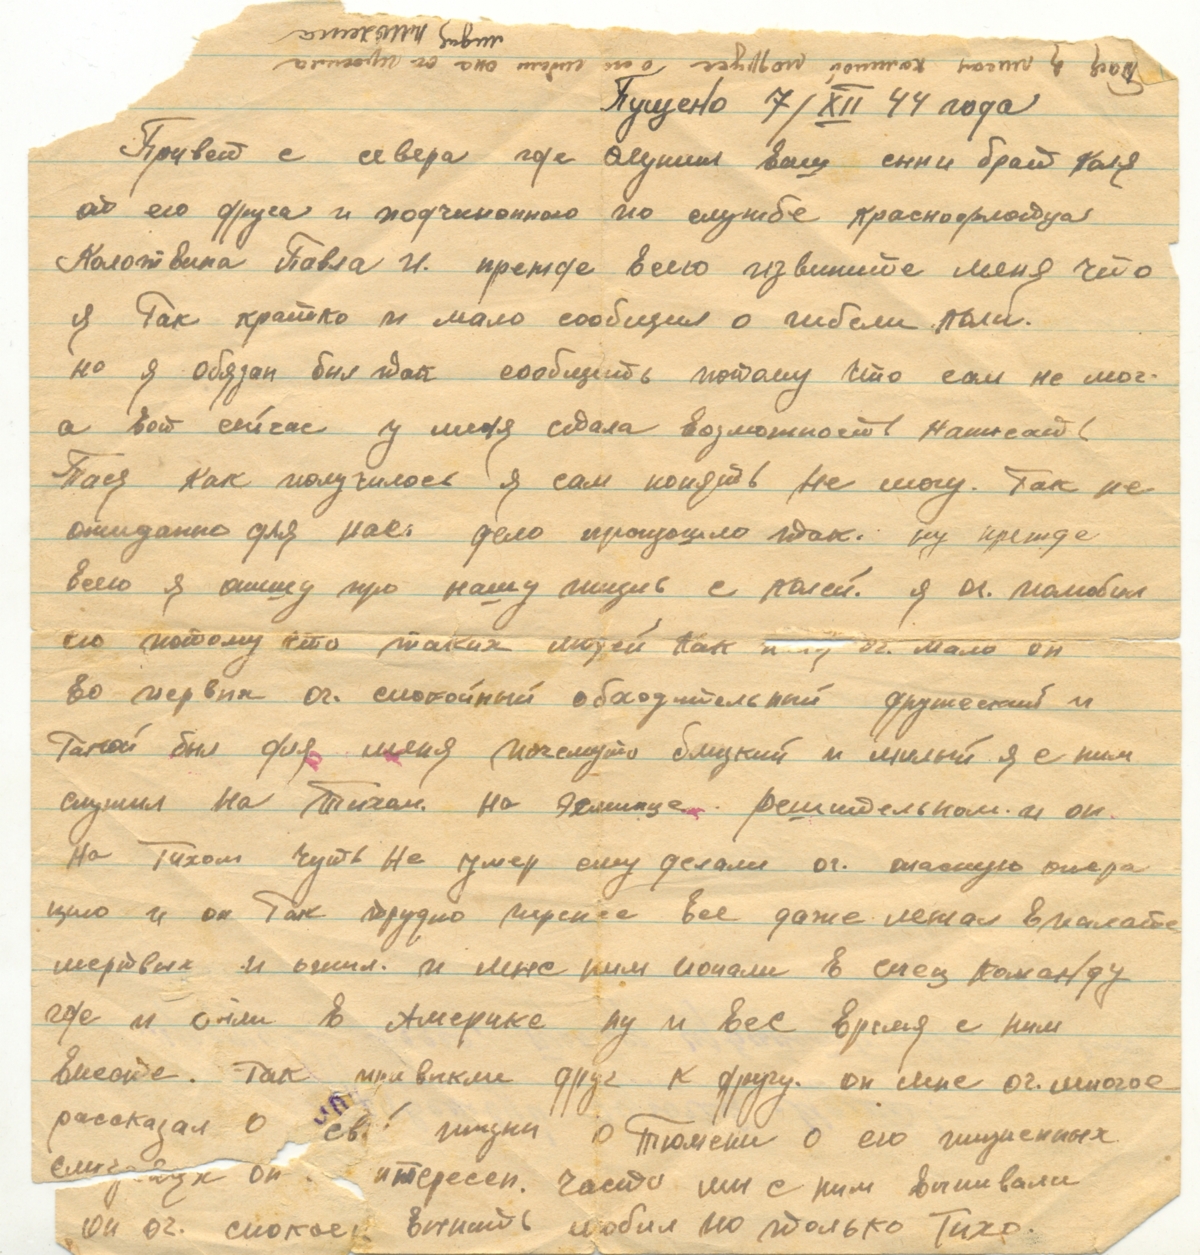 Тася я писал Колиной подруге
о ней она оч. просила
Пущено 7/XII 44 года
Привет с севера где служил ваш сын и брат Коля
от его друга и подчиненного по службе краснофлотца
Колотвина Павла И. прежде всего извините меня что
я так кратко и мало сообщил о гибели Коли.
но я обязан был так сообщить потому что сам не мог.
а вот сейчас у меня стала возможность написать
Тася как получилось я сам понять не могу. Так не
ожиданно для нас. дело произошло так. ну прежде
всего я пишу про нашу жизнь с Колей. я оч. полюбил
его потому что таких людей как оч. мало он
во первых оч. спокойный обходительный дружеский и
такой был для меня почемуто близкий и милый я с ним
служил на Тихом. на Эсминце. Решительном. и он.
на Тихом чуть не умер ему делали оч. опера
цию и он так трудно перенес все даже лежал в палате
мертвых и ожил. и мы с ним попали в спец команду
где и были в Америке ну и все время с ним
вместе. Так привыкли друг к другу. он мне оч. многое
рассказал о жизни о Тюмени о его жизненных
случаях он интересен. часто мы с ним выпивали
он оч. спокоен выпить любил но только Тихо.